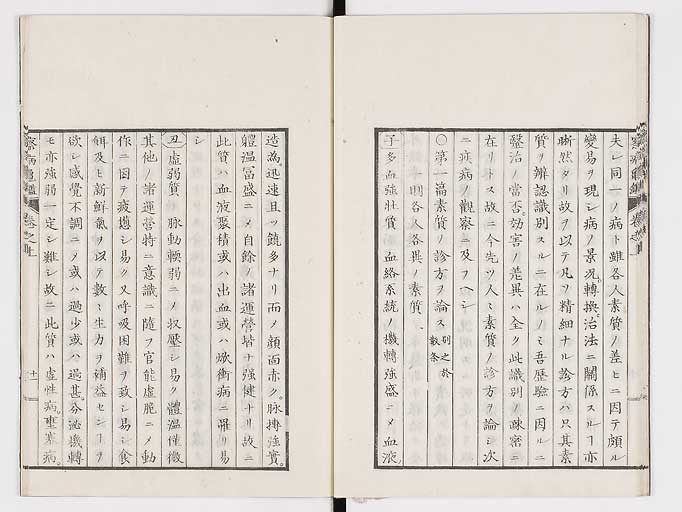 夫レ同一ノ病ト雖各人素質ノ差ヒニ因テ頗ル
變易ヲ現シ病ノ景況、轉換、治法ニ關係スルヿ亦
晰然タリ故ヲ以テ凡ソ精細ナル診方ハ只其素
質ヲ辨認識別スルニ在ルノミ吾歴驗ニ因ルニ
醫治ノ當否、効害ノ差異ハ全ク此識別ノ疎密ニ
在リトス故ニ今先ツ人ミ素質ノ診方ヲ論シ次
ニ疾病ノ觀察ニ及フヘシ
則各人各異ノ素質
○第一篇素質ノ診方ヲ論ス 列之於數条
子 多血強壯質 血絡系統ノ機轉強盛ニメ血液
造為迅速且ツ饒多ナリ而メ顔面赤ク。脉搏強實。
軆温富盛ニメ自餘ノ諸運營皆ナ強健ナリ故ニ
此質ハ血液聚積或ハ出血或ハ焮衝病ニ罹リ易
シ
丑 虚弱質 脉動輭弱ニメ收壓シ易ク體温僅微
其他ノ諸運營特ニ意識ニ隨フ官能虚脱ニメ動
作ニ因テ疲憊シ易ク又呼吸困難ヲ致シ易シ食
餌及ヒ新鮮氣ヲ以テ數ミ生力ヲ補益センヿヲ
欲シ感覺不調ニメ或ハ過少或ハ過甚分泌機轉
モ亦強弱一定シ難シ故ニ此質ハ虚性病。壅塞病。
察病龜鑑 卷之上
十二